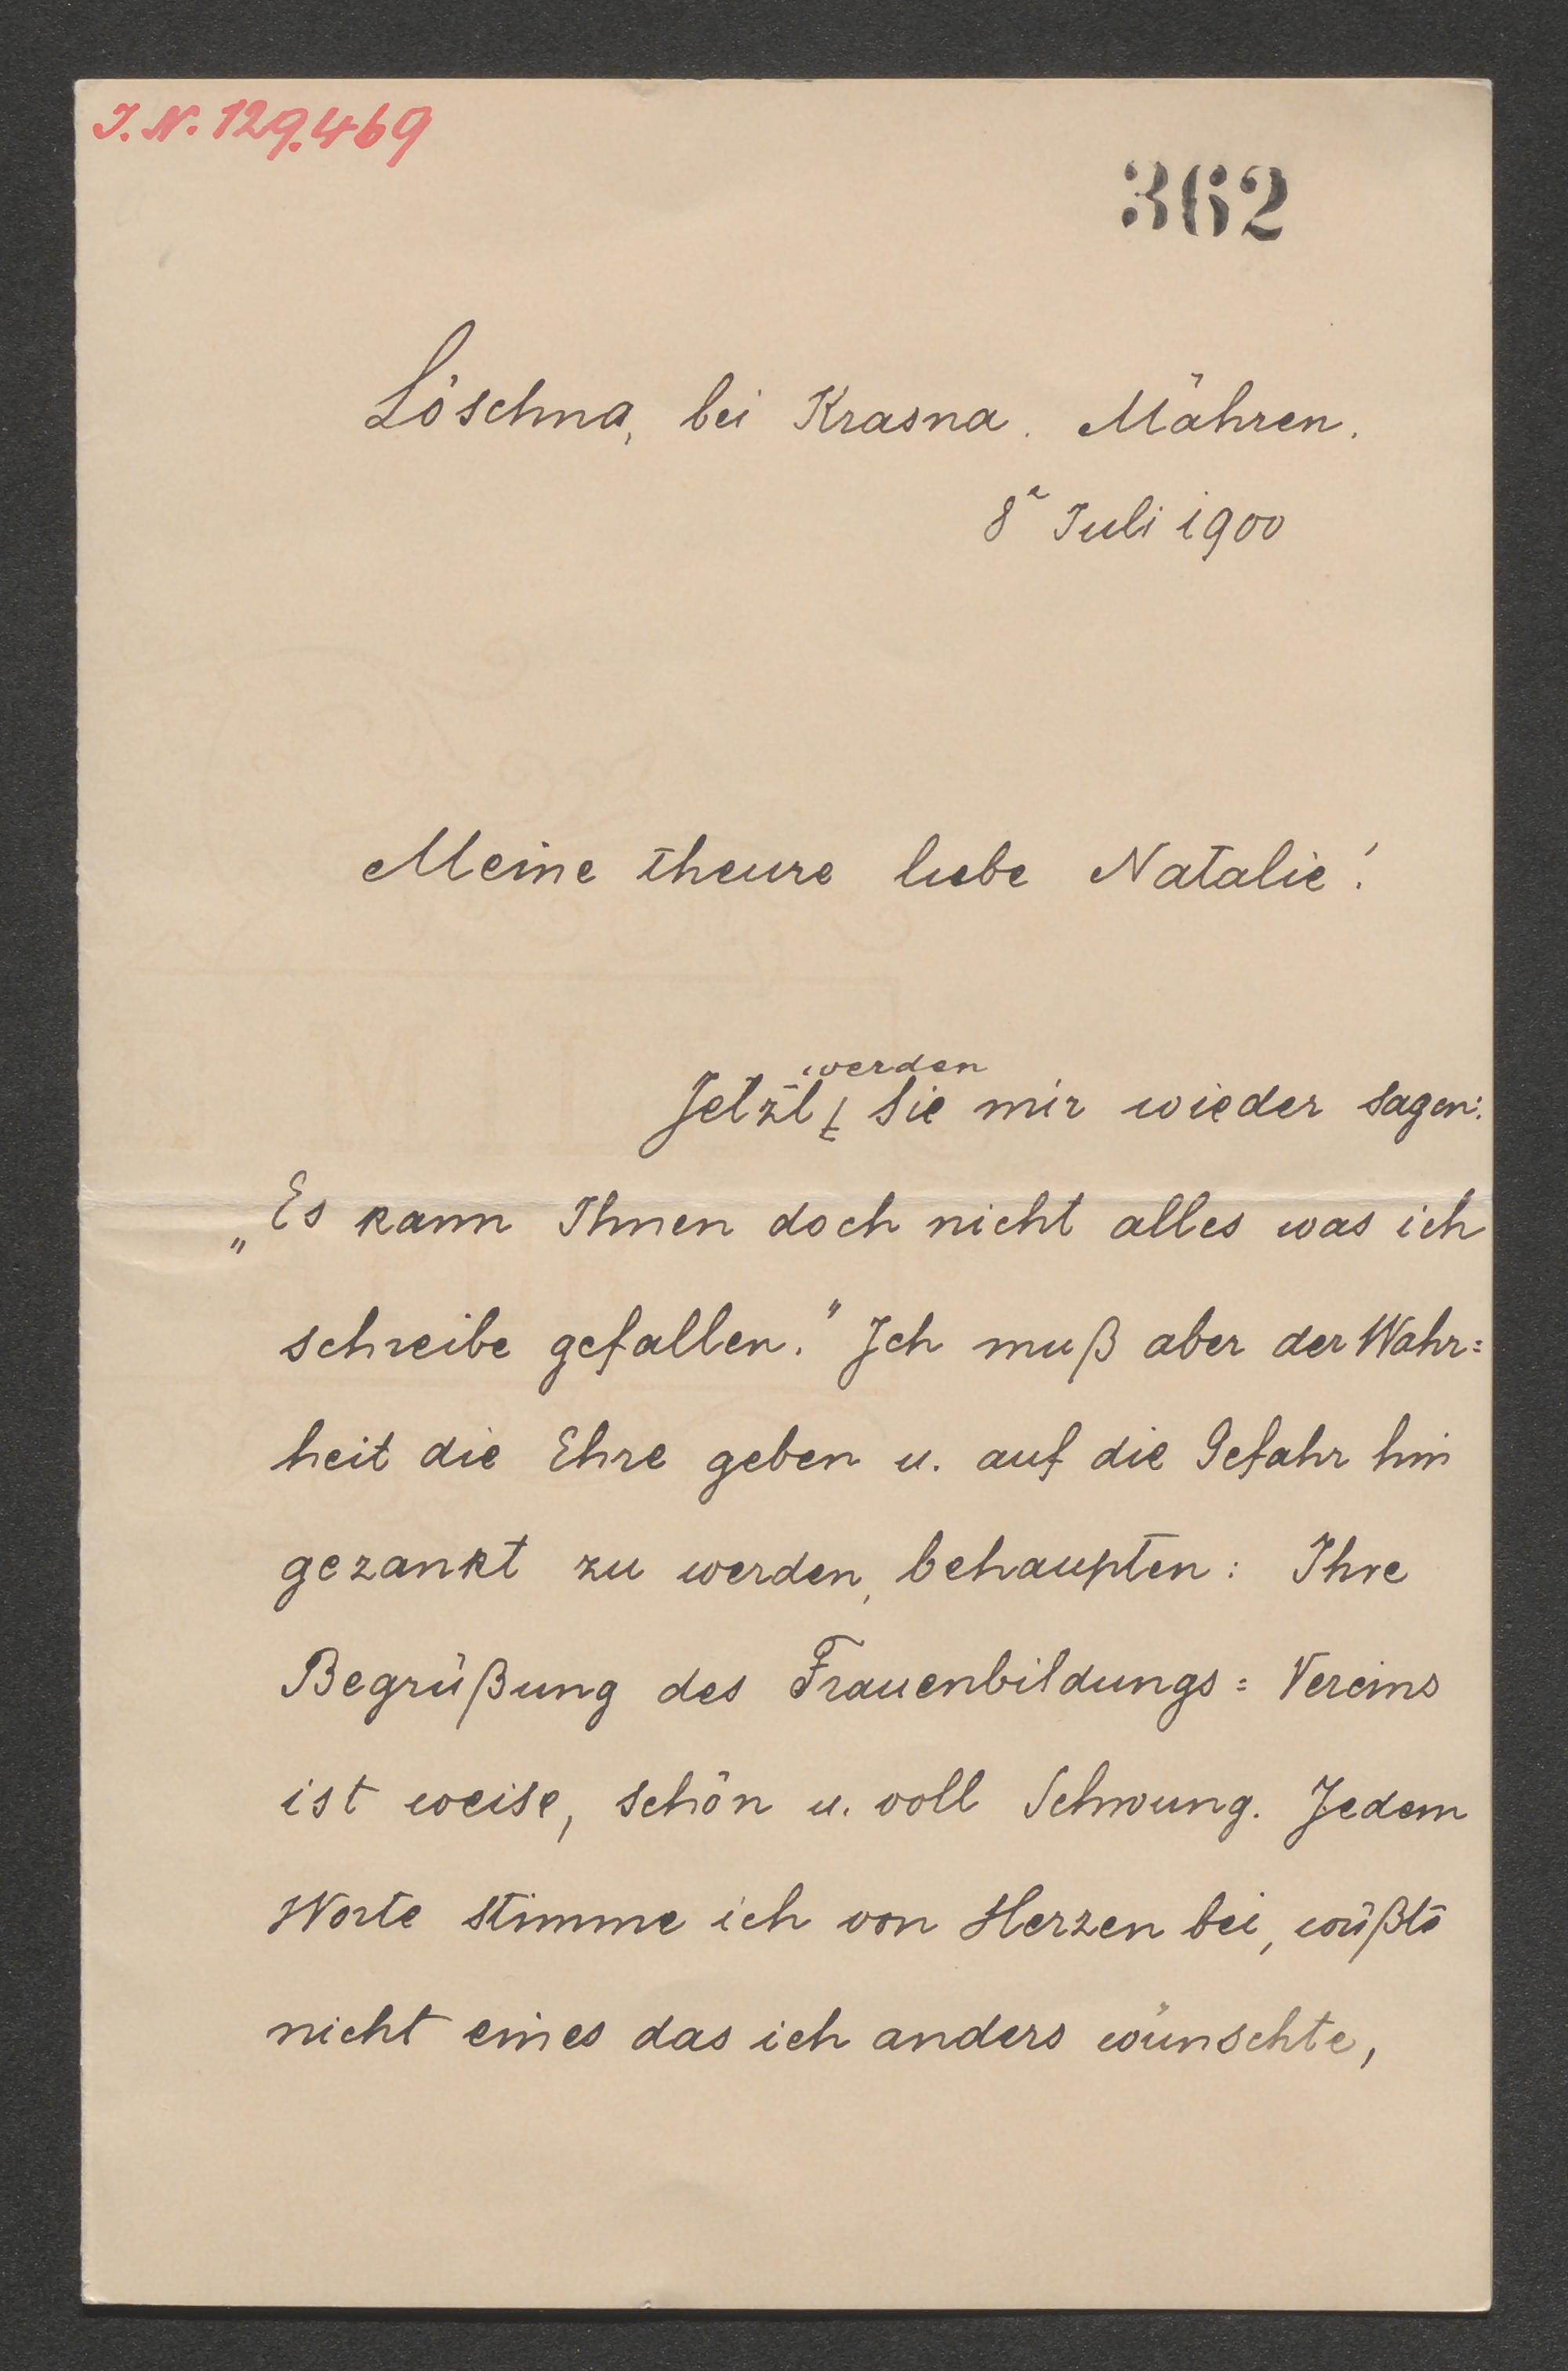 J. N. 129.469
362
Löschna, bei Krasna. Mähren.
8t Juli 1900
Meine theure liebe Natalie!
werden
Jetzt Sie mir wieder sagen:
„Es kann Ihnen doch nicht alles was ich
schreibe gefallen." Ich muß aber der Wahr=
heit die Ehre geben u. auf die Gefahr hin
gezankt zu werden, behaupten: Ihre
Begrüßung des Frauenbildungs=Vereins
ist weise, schön u. voll Schwung. Jedem
Worte stimme ich von Herzen bei, wüßte
nicht eines das ich anders wünschte,